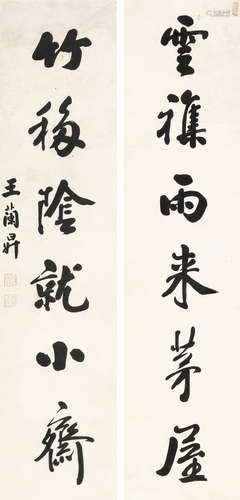 雲携雨来茅屋
竹移陰就小齋
王蘭昇